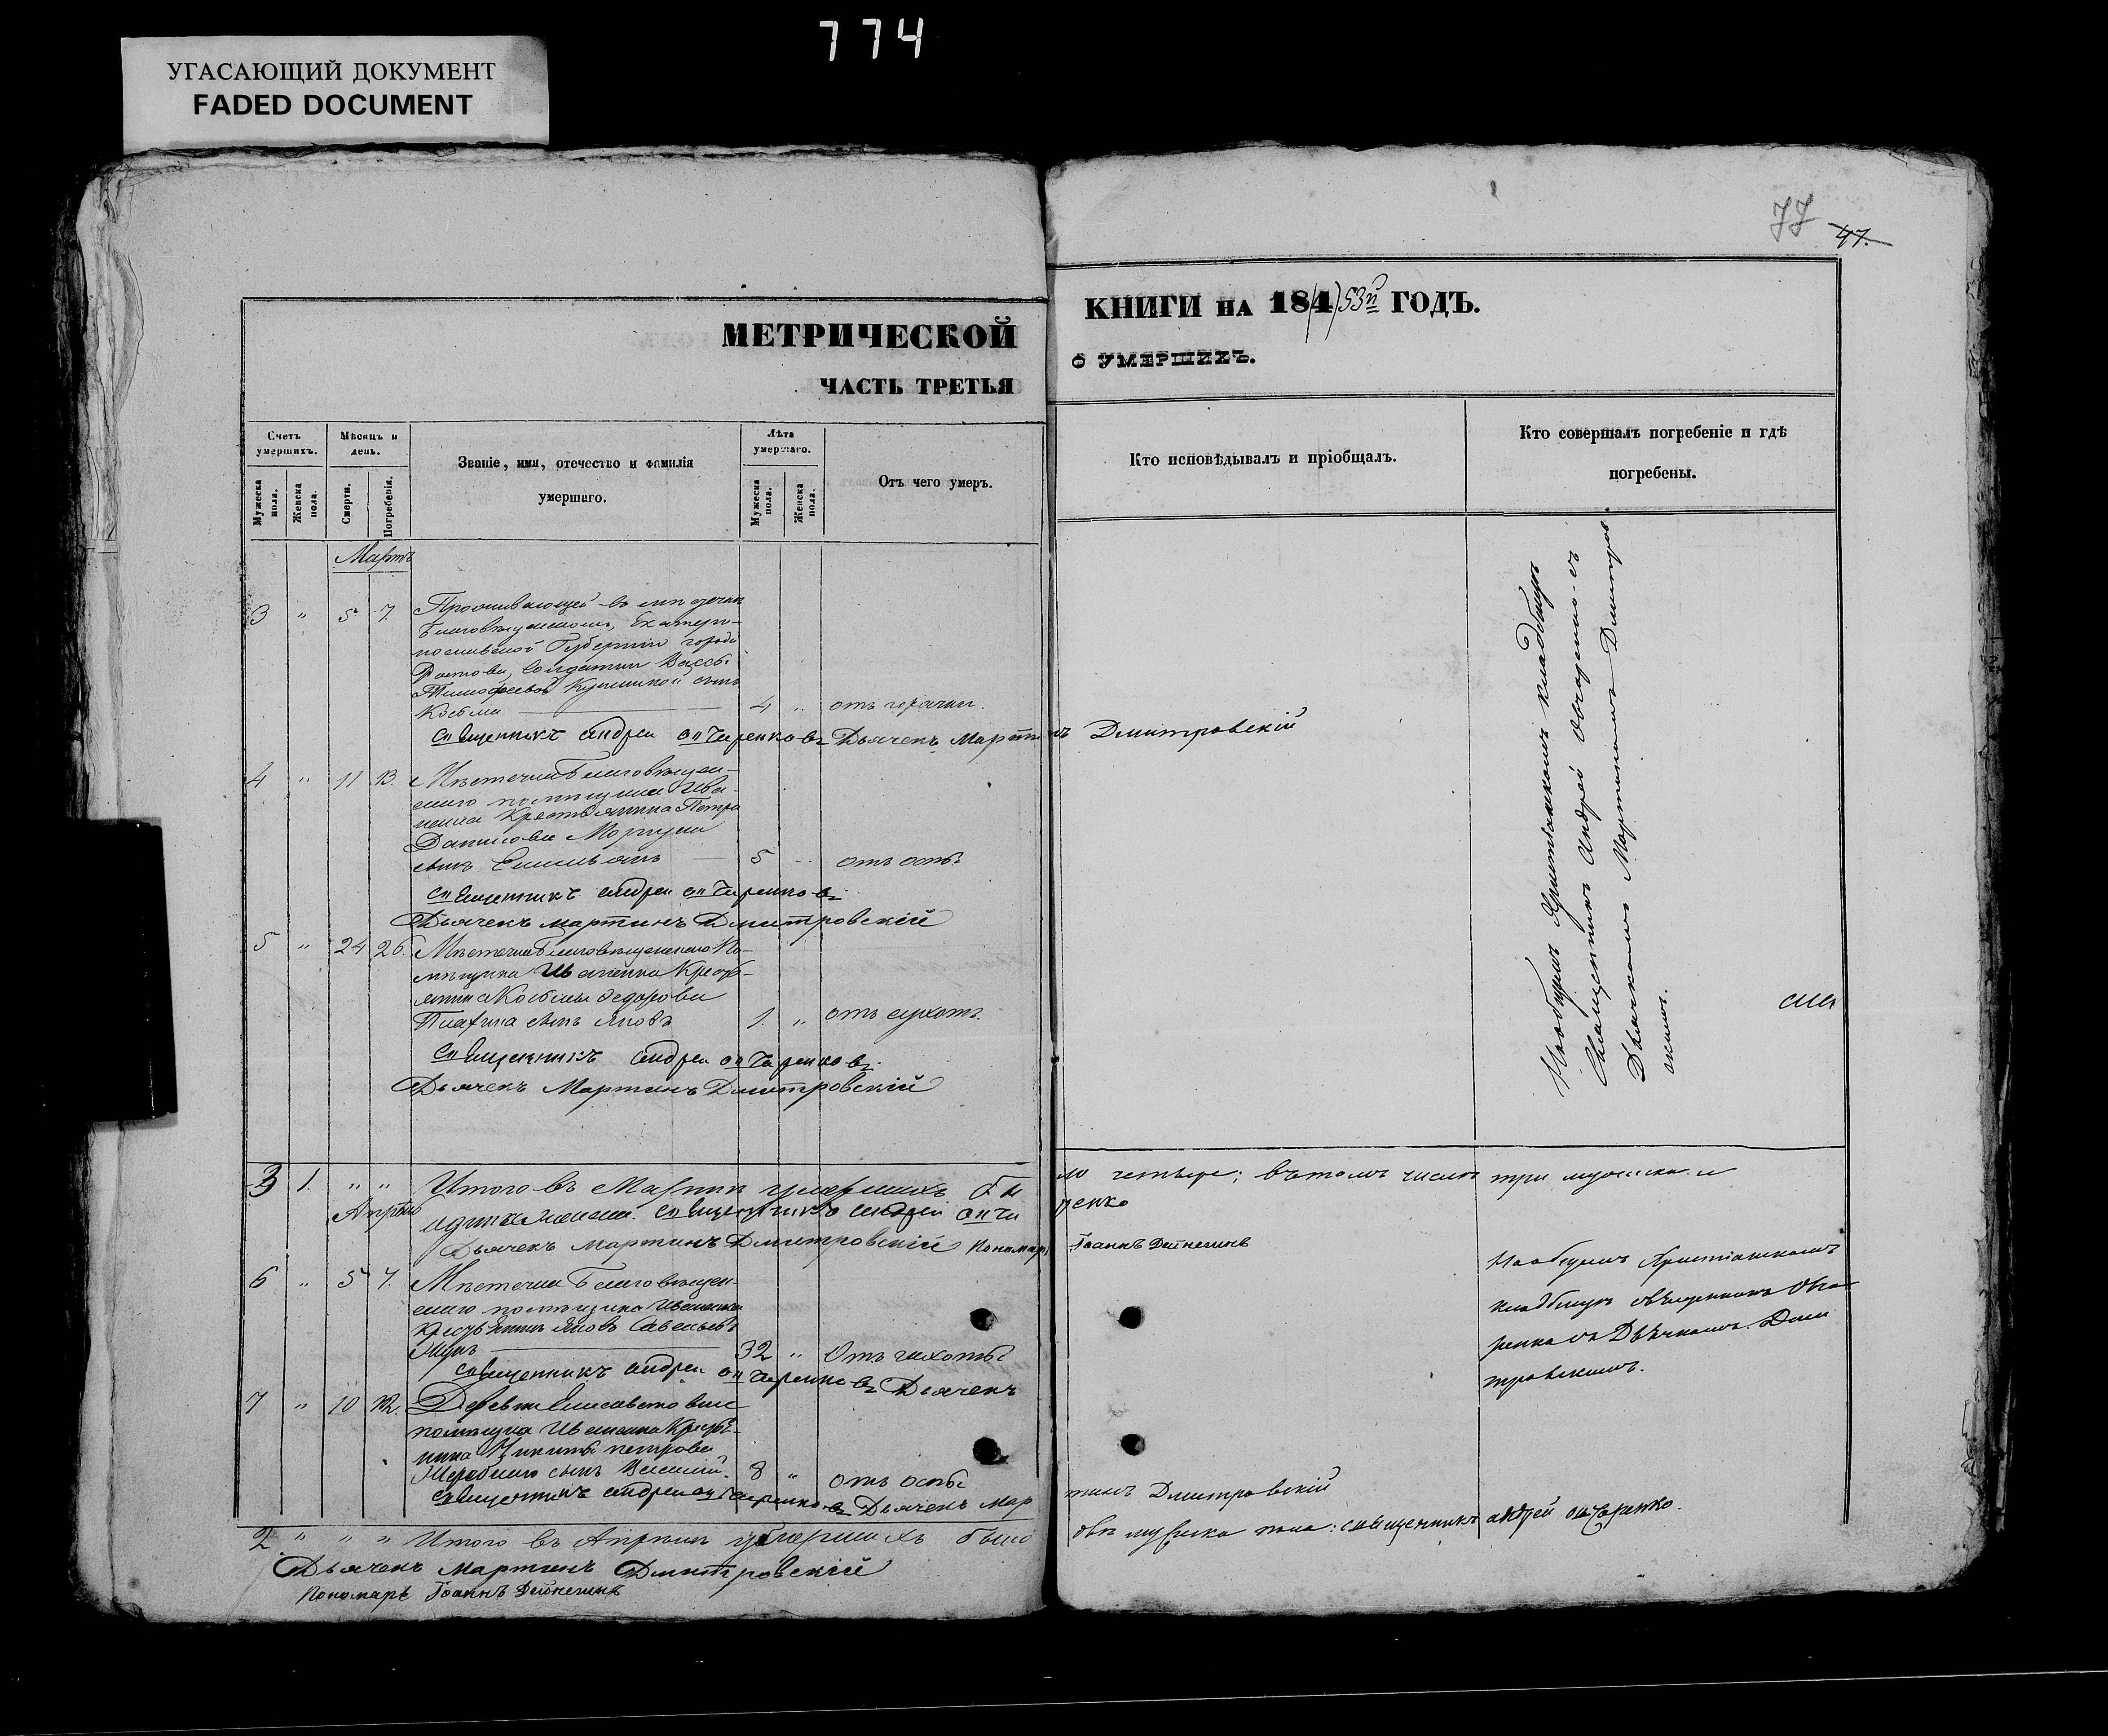 774
УГАСАЮЩИЙ ДОКУМЕНТ
FADED DOCUMENT
77
47.
МЕТРИЧЕСКОЙ
ЧАСТЬ ТРЕТЬЯ
КНИГИ НА 184 53й ГОДЪ.
О УМЕРШИХЪ.
Счетъ умершихъ.
Мужеска пола.
Женска пола.
Мѣсяцъ и день.
Смерти.
Погребенія.
Званіе, имя, отечество и фамилія
умершаго.
Лѣта умершаго.
Мужеска пола.
Женска пола.
Отъ чего умеръ.
Кто исповѣдывалъ и пріобщалъ.
Кто совершалъ погребеніе и гдѣ
погребены.
Мартъ
3 " 5 7. Проживающей въ
Екатери-
нославской Губерніи города
Ростова, Солдатки Вассы
Тимофеевой сынъ
Косьма 4 " отъ горячки.
Священникъ Андрей Овчаренковъ Дьячекъ Мартинъ Дмитровскій
4 " 11 13. Мѣстечка Благовѣщен-
скаго помѣщика Ива-
ненка Крестьянина Петра
Данилова
сынъ Емельянъ 5 " отъ оспы
Священникъ Андрей Овчаренковъ
Дьячекъ Мартинъ Дмитровскій
5 " 24 26. Мѣстечка Благовѣщенскаго По-
мѣщика Иваненка Кресть-
янина Косьмы Федорова
сынъ Яковъ 1. " отъ сухотъ.
Священникъ Андрей Овчаренковъ.
Дьячекъ Мартинъ Дмитровскій
На общемъ Христіанскомъ кладбищѣ
Священникъ Андрей Овчаренко съ
Дьячкомъ Мартиномъ Дмитров-
скимъ.
3 1. " " Итого въ Мартѣ умершихъ было четыре; въ томъ числѣ три мужска и
одна женска. Священникъ Андрей Овчаренко
Апрѣль
Дьячекъ Мартинъ Дмитровскій Пономарь Іоаннъ Дейнегинъ
6 " 5 7. Мѣстечка Благовѣщен-
скаго помѣщика Иваненка
Крестьянинъ Яковъ Савельевъ
32 " Отъ чахотки
Священникъ Андрей Овчаренковъ Дьячекъ
На общемъ Христіанскомъ
кладбищѣ Священникъ Овча-
ренко съ Дьячкомъ Дми-
тровскимъ.
7 " 10 12. Деревни Елисаветовки
помѣщика Иваненка Крестья-
нина Никиты Петрова
сынъ Василій. 8 " отъ оспы
Священникъ Андрей Овчаренковъ Дьячекъ Мартинъ Дмитровскій
2 " " " Итого въ Апрѣлѣ умершихъ было два мужска пола: Священникъ Андрей Овчаренко.
Дьячекъ Мартинъ Дмитровскій
Пономарь Іоаннъ Дейнегинъ